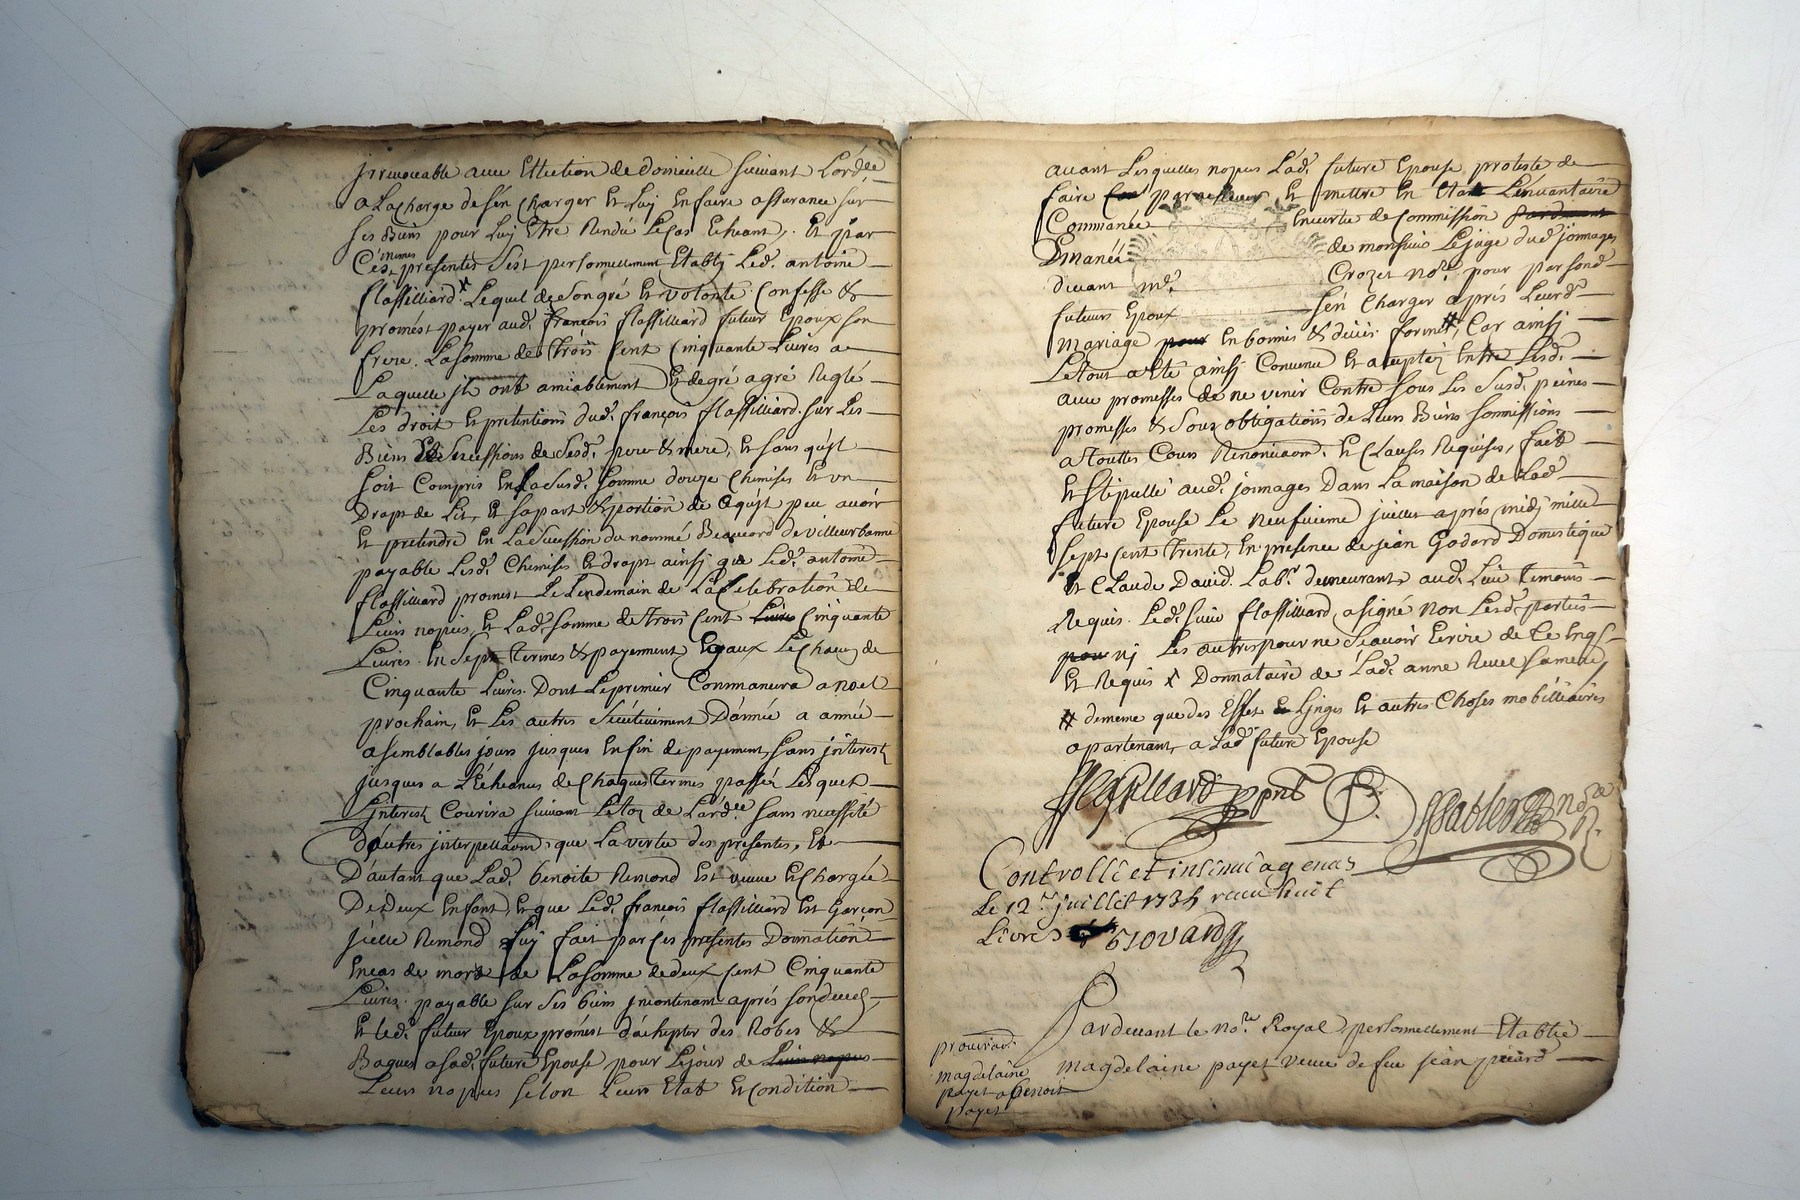 jrrevocable avec Ellection de domicille suivant L'ord.ce
a La charge de s'en Charger Et Luy En faire assurance sur
ses Biens pour Luy Etre Rendüe Le Cas Echeant, Et par
Ces mêmes presentes s'est personnellement Etably Led. antoine
flassilliard Lequel de son gré Et volonté Confesse &
promest payer aud. françois flassilliard futeur Epoux son
frere La somme de Trois Cent Cinquante Livres a
Laquelle jls ont amiablement Et de gré a gré Reglé
Les droit Et pretentions dud. françois flassilliard sur Les
Biens Et successions de sesd. pere & mere, Et sans qu'jl
soit Compris En La susd. somme douze Chemises Et un
Drapt de Lit, Et sa part & portion de Ce qu'jl peu avoir
Et pretendre En La succession du nommé Beaucord de villeurbanne
payable Lesd. Chemises Et drapt ainsj que Led. antoine
flassilliard promest Le Lendemain de La Celebration de
Leurs nopces, Et Lad. somme de trois Cent Livres Cinquante
Livres En Sept Termes & payement Egaux Le Chacun de
Cinquante Livres Dont Le premier Commancera a noel
prochain, Et Les autres Sécutivement D'année a année
a semblables jours jusques En fin de payement, sans jnterest
jusques a L'écheances de Chaques Termes passé Lesquel
jnterest Courira suivant Le Tos de L'ard.ce sans necessité
D'autres jnterpellaons que La vertu des presentes, Et
D'autant que Lad. benoite Remond Est veuve Et Chargée
De deux Enfant, Et que Led. françois flassilliard Est Garçon
jcelle Remond Luy fait par Ces presentes Donnation
En cas de mort de La somme de deux Cent Cinquante
Livres payable sur ses biens jncontenant aprés son decés,
Et Led. futeur Epoux promest d'achepter des Robes &
Bagues a sad. future Epouse pour Le jour de Leurs nopces
Leurs nopces selon Leurs Etat Et Condition
avant Lesquelles nopces Lad. future Epouse proteste de
faire Et mettre En Etat L'inventaire
Commancé En vertu de Commission
Emanéé de monsieur Le juge dud. jonnages
divant m.e Crozet no.re pour par sond.
futeurs Epoux s'en Charger aprés Leurd.
mariage pour En bonnes & deües formes #, Car ainsj
Le tout a Eté ainsj Convenu Et acceptéz Entre Lesd.
avec promesses de ne venir Contre sous Les susd. peines
promesses & sous obligations de Leurs Biens sommissions
a Touttes Cours Renonciaons Et Clauses Requises, fait
Et Stipullé aud. jonnages Dans La maison de Lad.
future Epouse Le neufvieme juillet aprés midj mille
Sept Cent Trente, En presence de jean Godard Domestique
Et Claude David Lab.r demeurants aud. Lieu Temoins
Requis Led. sieur flassilliard a signé non Lesd. parties
pour nj Les autres pour ne Sçavoir Ecrire de Ce Enqs
Et Requis x Donnataire de Lad. anne
# de meme que des Effet Linges Et autres Choses mobilliaires
apartenant, a Lad. future Epouse
flassilliard pnt
Sabler no.re
Controllé et insinué a genas
Le 12.e juillet 173 receu huit
Livres
Par devant le no.re Royal personnellement Etablie
magdelaine payet veuve de feu jean
procuraõ.
magdelaine
payet a benoit
payet